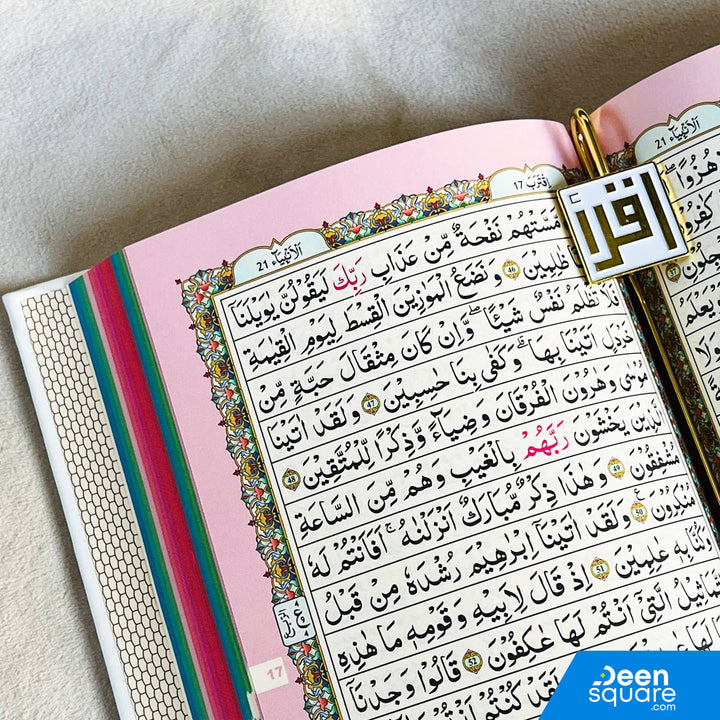 الانبیآء 21
اقترب 17
الانبیآء 21
اقرأ
مَّسَّتْهُمْ نَفْحَةٌ مِّنْ عَذَابِ رَبِّكَ لَيَقُوْلُنَّ يٰوَيْلَنَآ
ظٰلِمِيْنَ 46 وَ نَضَعُ الْمَوَازِيْنَ الْقِسْطَ لِيَوْمِ الْقِيٰمَةِ
فَلَا تُظْلَمُ نَفْسٌ شَيْـًٔا ۖ وَ اِنْ كَانَ مِثْقَالَ حَبَّةٍ مِّنْ
خَرْدَلٍ اَتَيْنَا بِهَا ۖ وَ كَفٰى بِنَا حٰسِبِيْنَ 47 وَ لَقَدْ اٰتَيْنَا
مُوْسٰى وَ هٰرُوْنَ الْفُرْقَانَ وَ ضِيَآءً وَّ ذِكْرًا لِّلْمُتَّقِيْنَ 48
الَّذِيْنَ يَخْشَوْنَ رَبَّهُمْ بِالْغَيْبِ وَ هُمْ مِّنَ السَّاعَةِ
مُشْفِقُوْنَ 49 وَ هٰذَا ذِكْرٌ مُّبٰرَكٌ اَنْزَلْنٰهُ ۚ اَفَاَنْتُمْ لَهٗ
مُنْكِرُوْنَ 50 وَ لَقَدْ اٰتَيْنَآ اِبْرٰهِيْمَ رُشْدَهٗ مِنْ قَبْلُ
وَ كُنَّا بِهٖ عٰلِمِيْنَ 51 اِذْ قَالَ لِاَبِيْهِ وَ قَوْمِهٖ مَا هٰذِهِ
التَّمَاثِيْلُ الَّتِيْٓ اَنْتُمْ لَهَا عٰكِفُوْنَ 52 قَالُوْا وَجَدْنَآ
لَقَدْ كُنْتُمْ اَنْتُمْ
17
هُزُوًا
Deen
square
.com